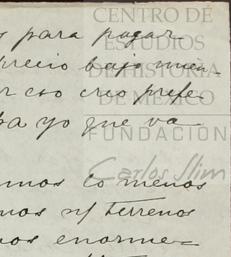 CENTRO DE
ESTUDIOS
DE HISTORIA
DE MÉXICO
FUNDACIÓN
Carlos Slim
s para pagar
precio bajo mien-
r eso creo prefe-
ba yo que va
mos lo menos
mos s/ terrenos
nos enorme=